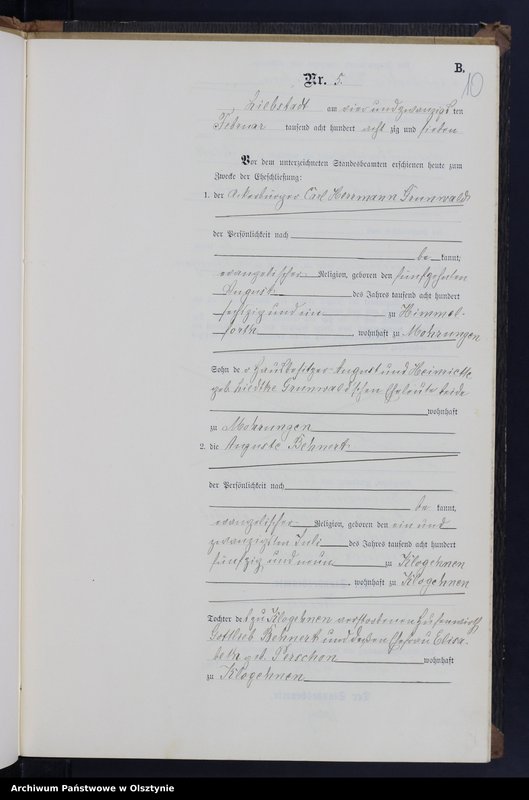 B.
10
Nr. 5.
Liebstadt am vier und zwanzigsten
Februar tausend acht hundert acht zig und sieben
Vor dem unterzeichneten Standesbeamten erschienen heute zum
Zwecke der Eheschließung:
1. der Ackerbürger Carl Herrmann Grunwald
der Persönlichkeit nach
be kannt,
evangelischer Religion, geboren den fünfzehnten
August des Jahres tausend acht hundert
sechszig und ein zu Himmel-
forth, wohnhaft zu Mohrungen
Sohn der Hausbesitzer August und Heinriette
geb. Liedtke Grunwald'schen Eheleute beide
wohnhaft
zu Mohrungen
2. die Auguste Behnert
der Persönlichkeit nach
be kannt,
evangelischer Religion, geboren den ein und
zwanzigsten Juli des Jahres tausend acht hundert
fünfzig und neun zu Klogehnen
, wohnhaft zu Klogehnen
Tochter des zu Klogehnen verstorbenen Hufenwirth
Gottlieb Behnert und dessen Ehefrau Elisa-
beth geb. Perschon wohnhaft
zu Klogehnen
Archiwum Państwowe w Olsztynie